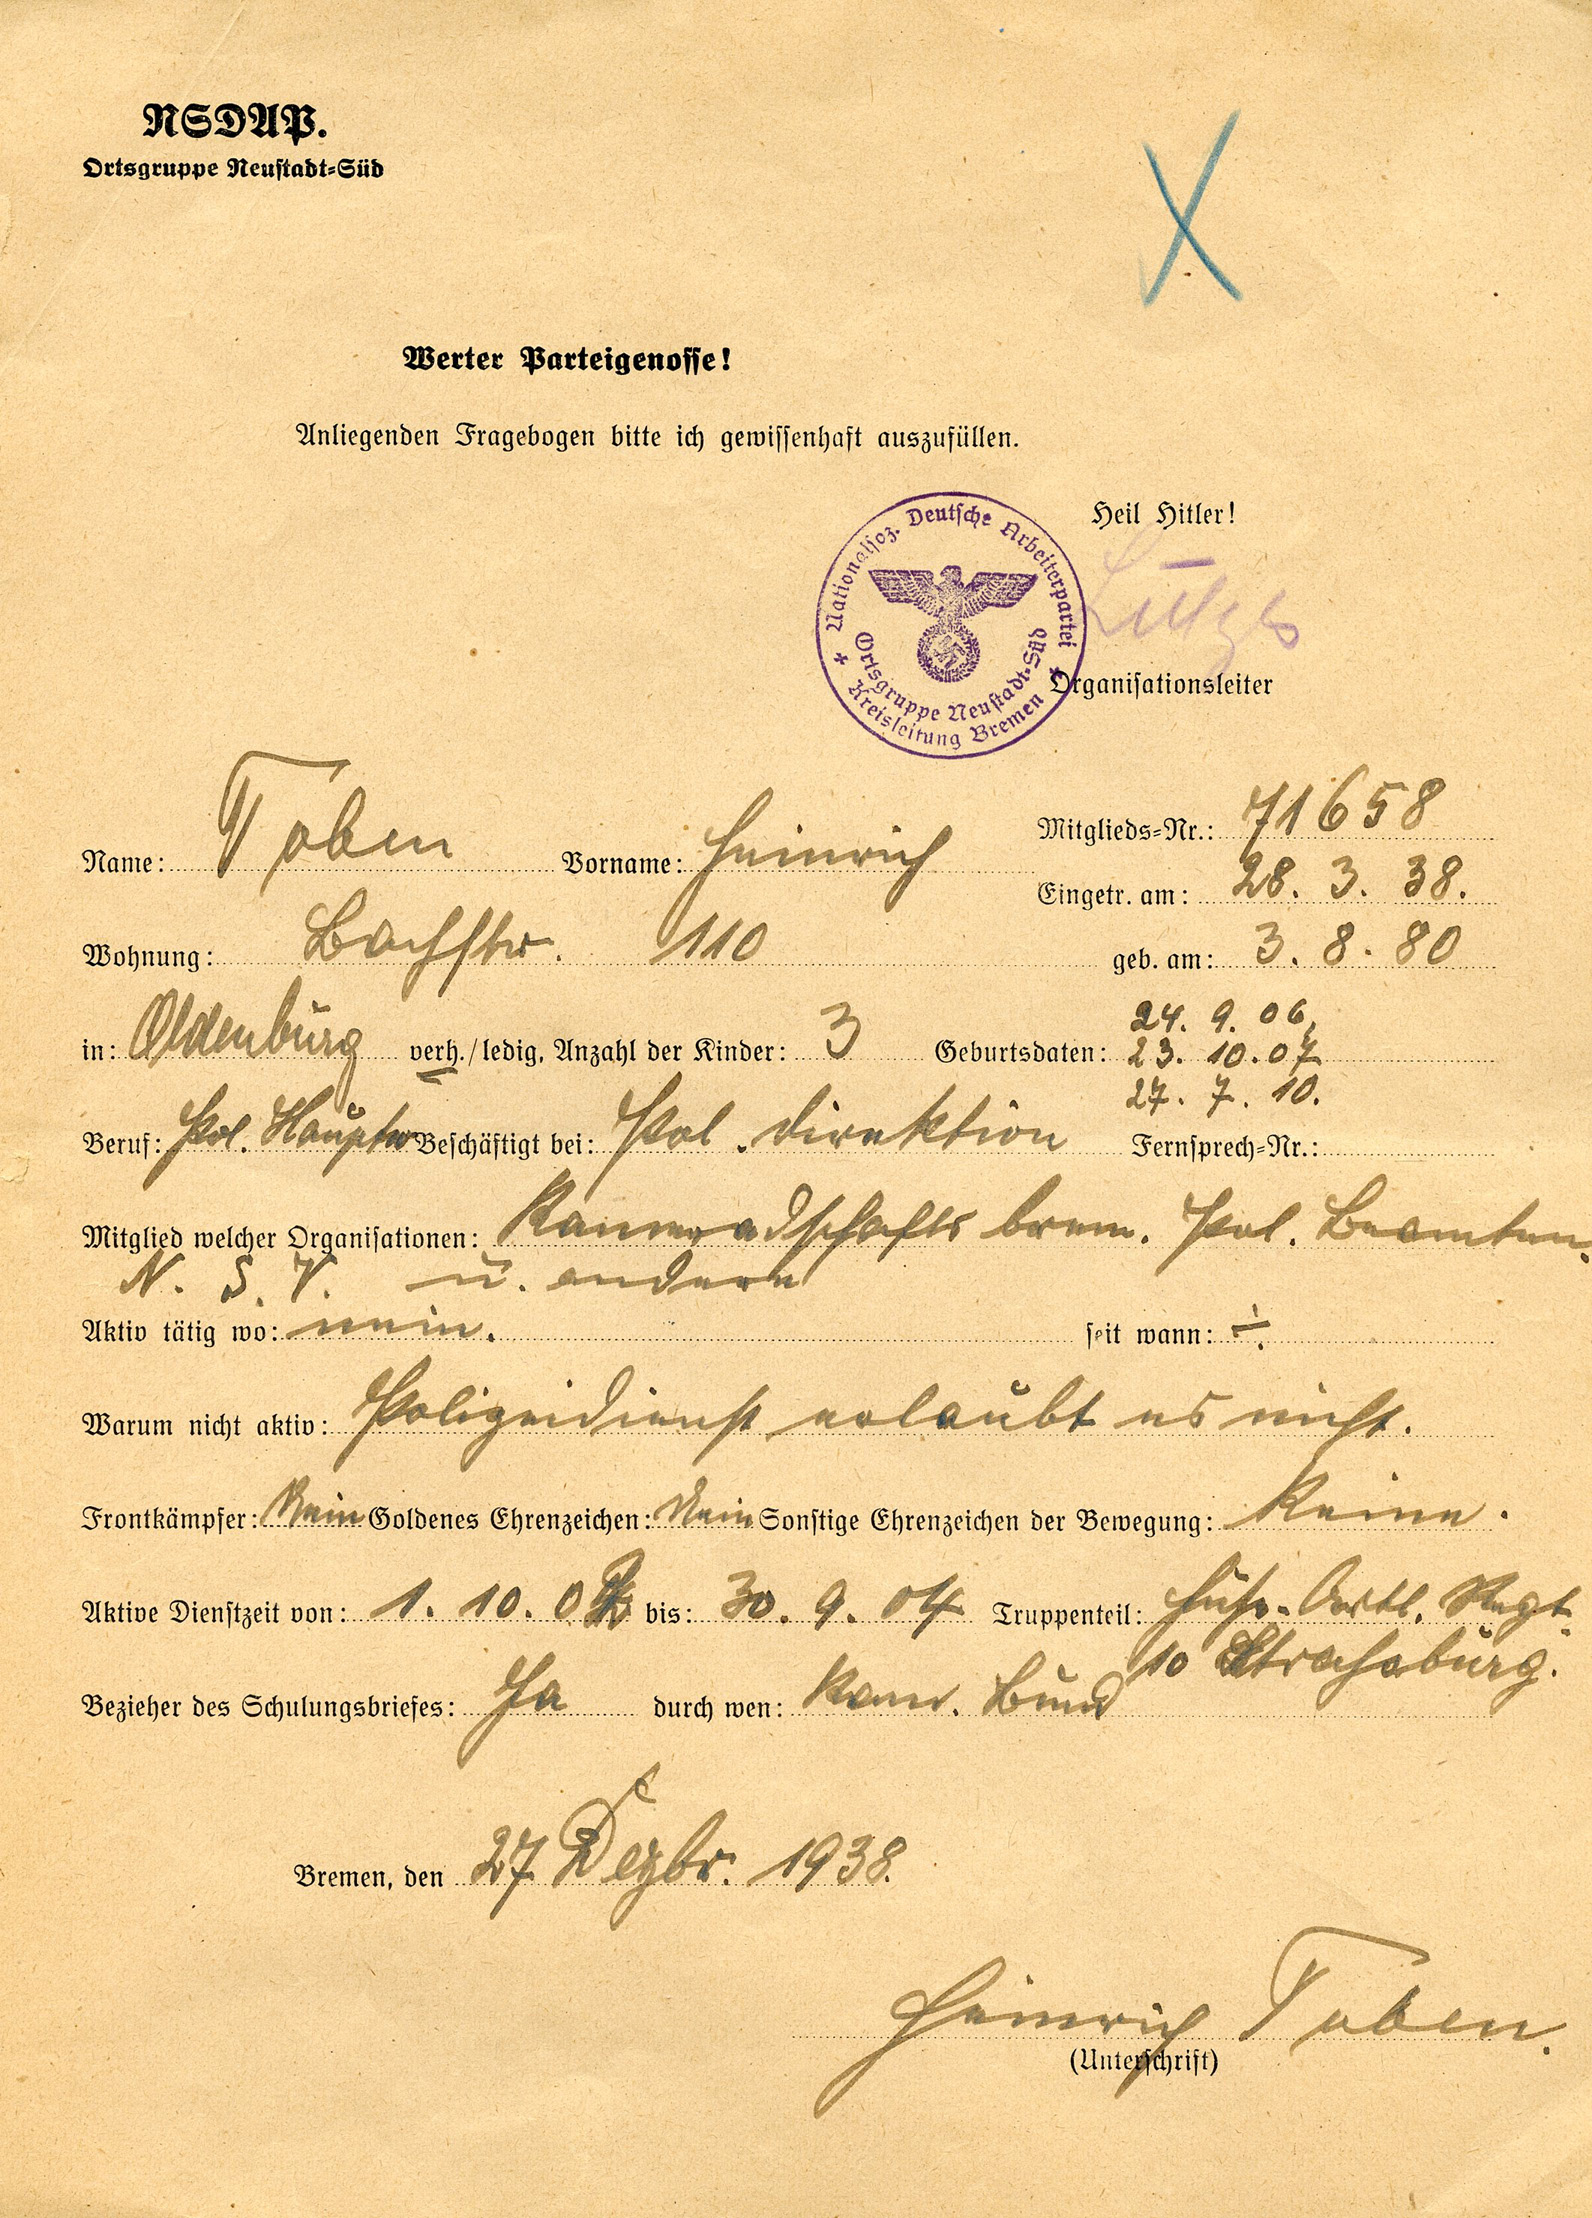 NSDAP.
Ortsgruppe Neustadt-Süd
Werter Parteigenosse!
Anliegenden Fragebogen bitte ich gewissenhaft auszufüllen.
Heil Hitler!
Nationalsoz. Deutsche Arbeiterpartei
Ortsgruppe Neustadt-Süd
Kreisleitung Bremen
Organisationsleiter
Name: Toben Vorname: Heinrich Mitglieds-Nr.: 71658
Eingetr. am: 28. 3. 38.
Wohnung: Bachstr. 110 geb. am: 3. 8. 80
in: Oldenburg verh./ledig, Anzahl der Kinder: 3 Geburtsdaten: 24. 9. 06,
23. 10. 07
27. 7. 10.
Beruf: Pol. Hauptw Beschäftigt bei: Pol. Direktion Fernsprech-Nr.:
Mitglied welcher Organisationen: Kameradschafts brem. Pol. Beamten.
N. S. V. u. andere
Aktiv tätig wo: nein. seit wann: ÷.
Warum nicht aktiv: Polizeidienst erlaubt es nicht.
Frontkämpfer: Nein Goldenes Ehrenzeichen: Nein Sonstige Ehrenzeichen der Bewegung: Keine.
Aktive Dienstzeit von: 1. 10. bis: 30. 9. 04 Truppenteil: Fußa-Artl. Regt.
10 Straßburg.
Bezieher des Schulungsbriefes: Ja durch wen: Kam. Bund
Bremen, den 27 Dezbr. 1938.
Heinrich Toben.
(Unterschrift)